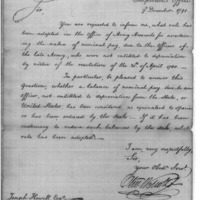 Comptroller's Office
9 December 1791
Sir,
You are requested to inform me, what rule has
been adopted in the Office of Army Accounts for ascertaining
the value of nominal pay, due to the officers of the
late Army, who were not entitled to depreciation
by virtue of the resolutions of the 10th of April 1780.
In particular, be pleased to answer this
question, whether a balance of nominal pay due to an
officer, not entitled to depreciation from the State, or
United States has been considered, as equivalent to specie
or has been reduced by the scale. If it has been
customary to reduce such balances by the scale, what
rule has been adopted?
I am very respectfully
Sir,
your Obed. Servt.
Oliv Wolcott
Joseph Howell Esqr.